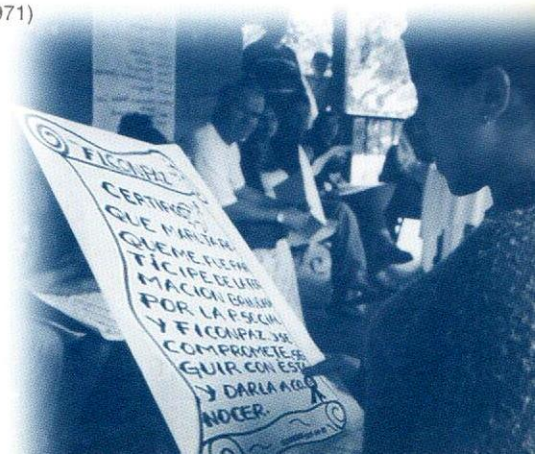 971)
FICONPAZ
CERTIFICO
QUE MARTA
QUEME FUE PAR
TÍCIPE DE LA FOR
MACION
POR LA P. SOCIAL
Y FICONPAZ. Y SE
COMPROMETE. SE
GUIR CON ESTA
Y DARLA A CO
NOCER.